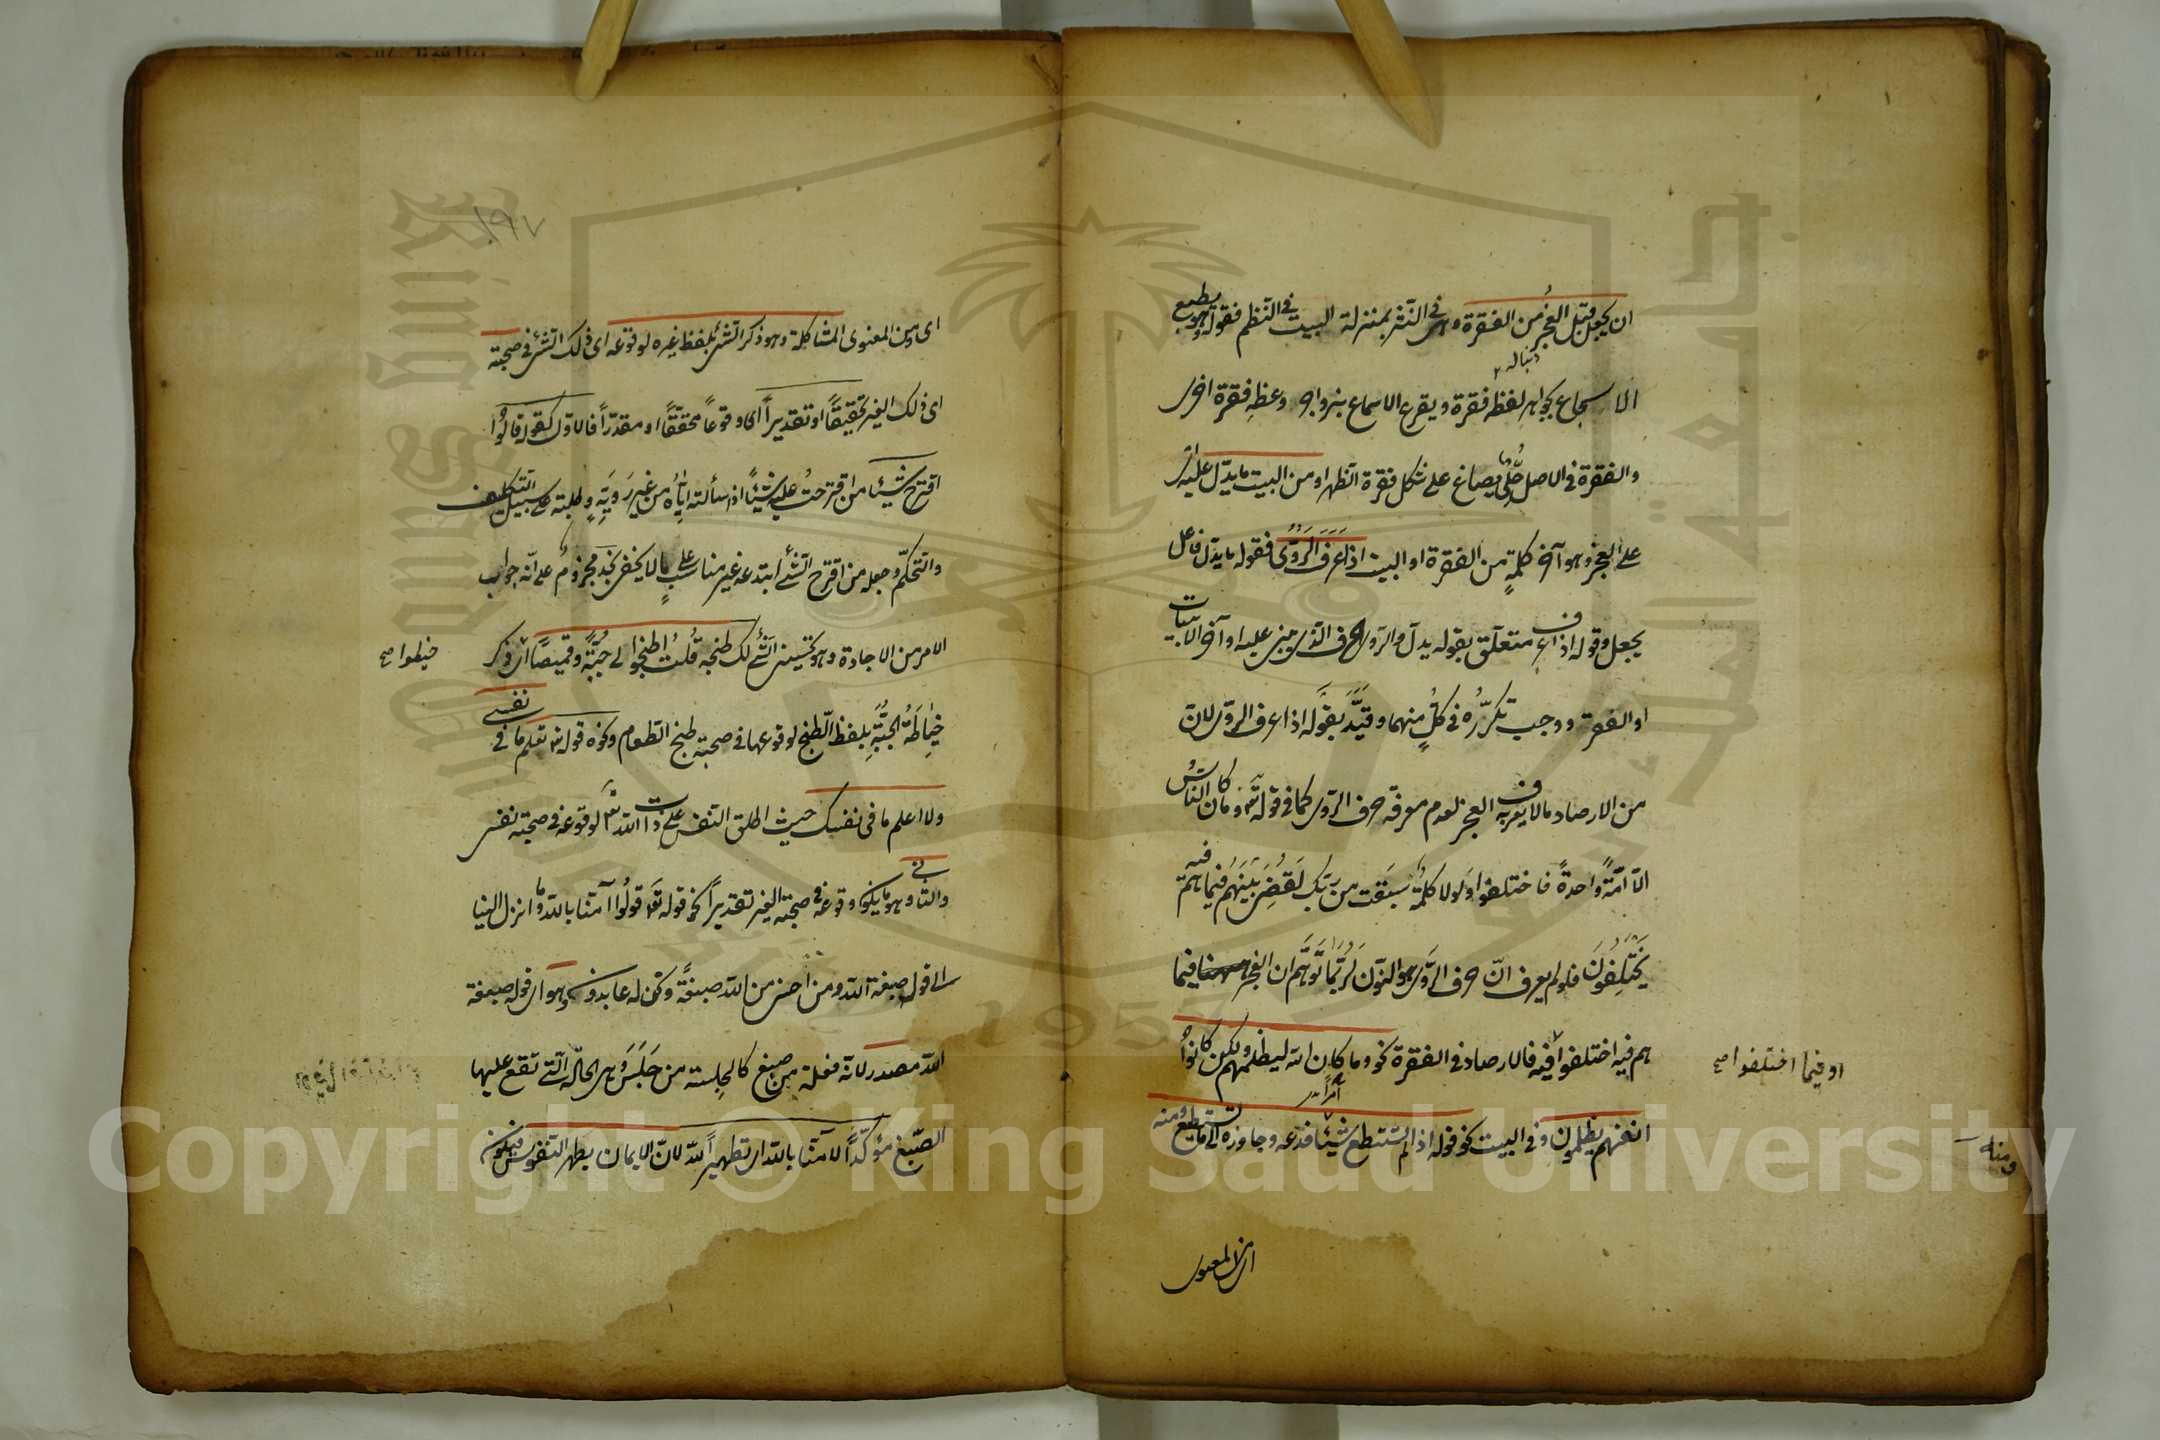 ان يجعل قبل العجز من الفقرة وهى فى النثر بمنزلة البيت فى النظم فقوله وهو يطبع
الاسجاع بجواهر لفظه فقرة ويقرع الاسماع بزواجر وعظه فقرة اخرى
والفقرة فى الاصل حلى يصاغ على شكل فقرة الظهر او من البيت ما يدل عليه اى
على العجز وهو آخر كلمة من الفقرة او البيت اذا عرف الروى فقوله ما يدل فاعل
يجعل وقوله اذا عرف متعلق بقوله يدل والروى الحرف الذى بنى عليه اواخر الابيات
او الفقرة ووجب تكرره فى كل منهما وقيد بقوله اذا عرف الروى لان
من الارصاد مالا يعرف به العجز لعدم معرفة حرف الروى كما فى قوله تعالى وما كان الناس
الا امة واحدة فاختلفوا ولولا كلمة سبقت من ربك لقضى بينهم فيما هم فيه
يختلفون فلو لم يعرف ان حرف الروى هو النون لربما توهم ان العجز ههنا فيما
هم فيه اختلفوا فيه فالارصاد فى الفقرة نحو وما كان الله ليظلمهم ولكن كانوا
او فيما اختلفوا صح
انفسهم يظلمون وفى البيت نحو قوله اذا لم تستطع شيئا فدعه وجاوزه الى ما تستطيع ومنه
امرا
ومنه
اى من المعنوى
١٩٧
اى ومن المعنوى المشاكلة وهو ذكر الشئ بلفظ غيره لوقوعه اى ذلك الشئ فى صحبته
اى ذلك الغير تحقيقا او تقديرا اى وقوعا محققا او مقدرا فالاول كقوله قالوا
اقترح شيئا من اقترحت عليه شيئا اذا سألته اياه من غير روية وطلبته على سبيل التكليف
والتحكم وجعله من اقترح الشئ ابتدعه غير مناسب على مالا يخفى نجد مجزوم على انه جواب
الامر من الاجادة وهو تحسين الشئ لك طبخه قلت اطبخوا لى جبة وقميصا اى ذكر
خيطوا صح
خياطة الجبة بلفظ الطبخ لوقوعها فى صحبة طبخ الطعام ونحوه قوله تعالى تعلم ما فى نفسى
ولا اعلم ما فى نفسك حيث اطلق النفس على ذات الله تعالى لوقوعه فى صحبة نفسى
والثانى وهو ما يكون وقوعه فى صحبة الغير تقديرا نحو قوله تعالى قولوا آمنا بالله وما انزل الينا
الى قوله صبغة الله ومن احسن من الله صبغة ونحن له عابدون وهو اى قوله صبغة
الله مصدر لانه فعلة من صبغ كالجلسة من جلس وهى الحالة التى تقع عليها
الصبغ مؤكد لآمنا بالله اى تطهير الله لان الايمان يطهر النفوس فيكون